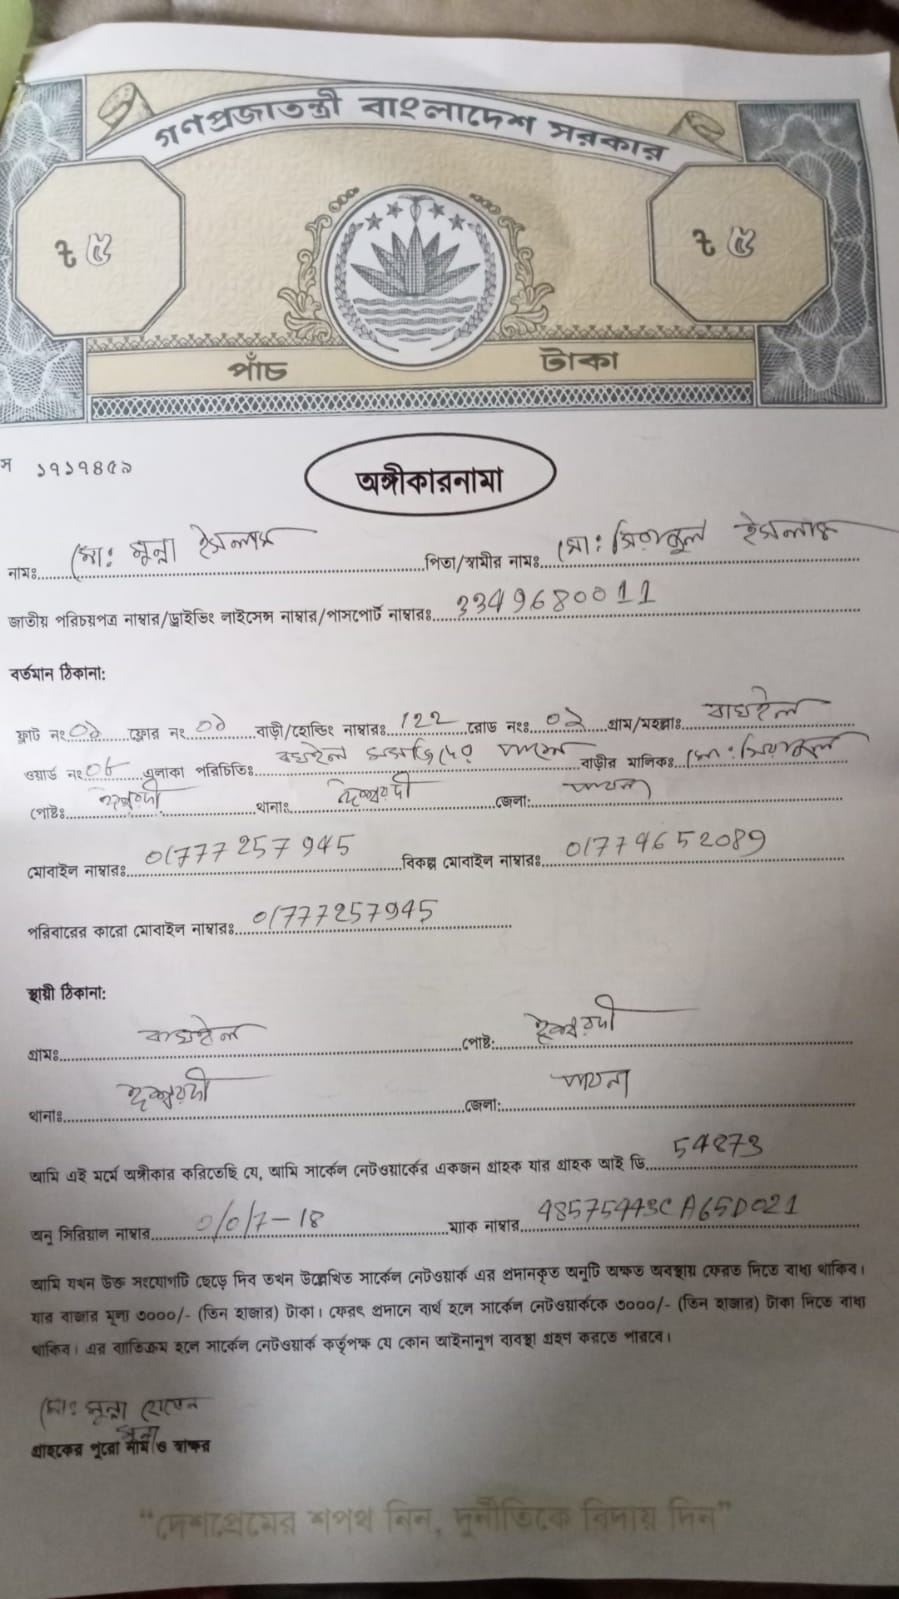 গণপ্রজাতন্ত্রী বাংলাদেশ সরকার
৳ ৫ ৳ ৫
পাঁচ টাকা
স ১৭১৭৪৫৯
অঙ্গীকারনামা
নামঃ মোঃ মুন্না ইসলাম পিতা/স্বামীর নামঃ মোঃ সিরাজুল ইসলাম
জাতীয় পরিচয়পত্র নাম্বার/ড্রাইভিং লাইসেন্স নাম্বার/পাসপোর্ট নাম্বারঃ 3349680011
বর্তমান ঠিকানা:
ফ্লাট নং ০১ ফ্লোর নং ০১ বাড়ী/হোল্ডিং নাম্বারঃ 122 রোড নংঃ ০২ গ্রাম/মহল্লাঃ বাঘইল
ওয়ার্ড নং ০৮ এলাকা পরিচিতিঃ বাঘইল মসজিদের পাশে বাড়ীর মালিকঃ মোঃ সিরাজুল
পোষ্টঃ ঈশ্বরদী থানাঃ ঈশ্বরদী জেলা: পাবনা
মোবাইল নাম্বারঃ 01777257945 বিকল্প মোবাইল নাম্বারঃ 01774652089
পরিবারের কারো মোবাইল নাম্বারঃ 01777257945
স্থায়ী ঠিকানা:
গ্রামঃ বাঘইল পোষ্ট: ঈশ্বরদী
থানাঃ ঈশ্বরদী জেলা: পাবনা
আমি এই মর্মে অঙ্গীকার করিতেছি যে, আমি সার্কেল নেটওয়ার্কের একজন গ্রাহক যার গ্রাহক আই ডি 54873
অনু সিরিয়াল নাম্বার 0/0/7-18 ম্যাক নাম্বার 48575443CA65D021
আমি যখন উক্ত সংযোগটি ছেড়ে দিব তখন উল্লেখিত সার্কেল নেটওয়ার্ক এর প্রদানকৃত অনুটি অক্ষত অবস্থায় ফেরত দিতে বাধ্য থাকিব।
যার বাজার মূল্য ৩০০০/- (তিন হাজার) টাকা। ফেরৎ প্রদানে ব্যর্থ হলে সার্কেল নেটওয়ার্ককে ৩০০০/- (তিন হাজার) টাকা দিতে বাধ্য
থাকিব। এর ব্যতিক্রম হলে সার্কেল নেটওয়ার্ক কর্তৃপক্ষ যে কোন আইনানুগ ব্যবস্থা গ্রহণ করতে পারবে।
মোঃ মুন্না হোসেন
মুন্না
গ্রাহকের পুরো নাম ও স্বাক্ষর
“দেশপ্রেমের শপথ নিন, দুর্নীতিকে বিদায় দিন”